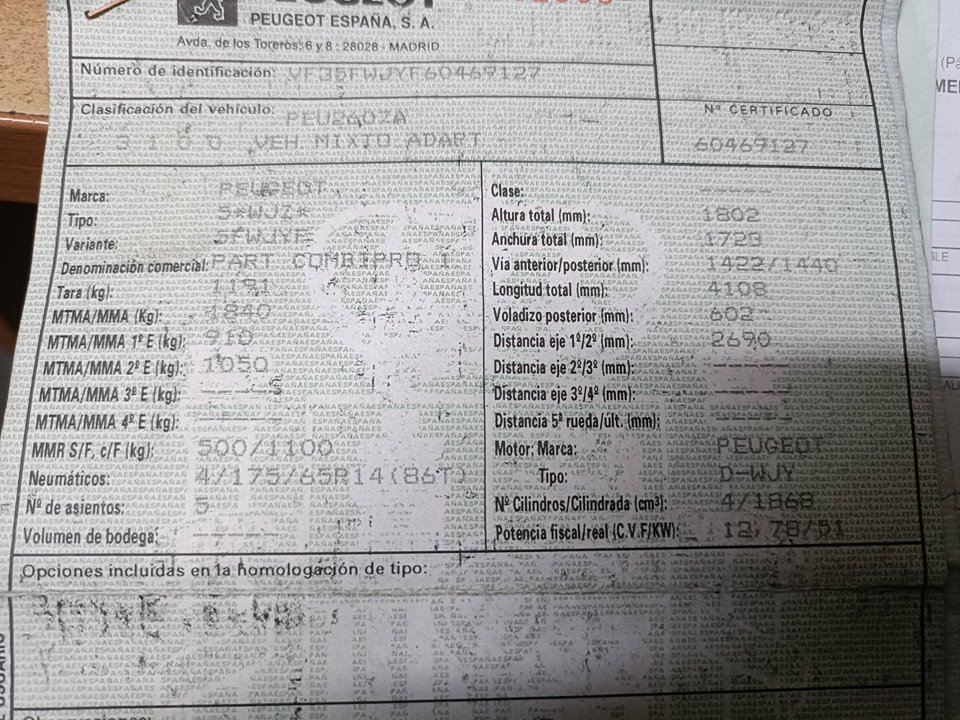 PEUGEOT
PEUGEOT ESPAÑA, S. A.
Avda. de los Toreros, 6 y 8 - 28028 - MADRID
Número de identificación: VF35FWJYF60469127
Clasificación del vehículo: PEU2407A
3100 VEH MIXTO ADAPT
Nº CERTIFICADO
60469127
Marca: PEUGEOT
Tipo: 5*WJZ*
Variante: 5FWJYF
Denominación comercial: PART COMBIPRB 1
Tara (kg): 1191
MTMA/MMA (Kg): 1840
MTMA/MMA 1º E (kg): 910
MTMA/MMA 2º E (kg): 1050
MTMA/MMA 3º E (kg): -----
MTMA/MMA 4º E (kg): -----
MMR S/F, c/F (kg): 500/1100
Neumáticos: 4/175/65R14(86T)
Nº de asientos: 5
Volumen de bodega: -----
Clase: -----
Altura total (mm): 1802
Anchura total (mm): 1723
Vía anterior/posterior (mm): 1422/1440
Longitud total (mm): 4108
Voladizo posterior (mm): 602
Distancia eje 1º/2º (mm): 2690
Distancia eje 2º/3º (mm): -----
Distancia eje 3º/4º (mm): -----
Distancia 5ª rueda/últ. (mm): -----
Motor: Marca: PEUGEOT
Tipo: D-WJY
Nº Cilindros/Cilindrada (cm³): 4/1868
Potencia fiscal/real (C.V.F/KW): 12,78/51
Opciones incluidas en la homologación de tipo: